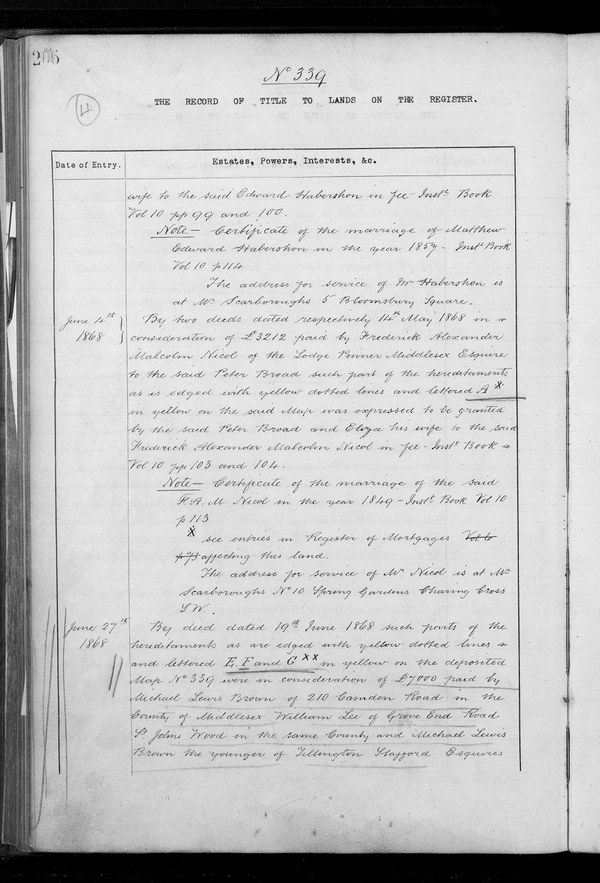 206
No 339
4
THE RECORD OF TITLE TO LANDS ON THE REGISTER.
Date of Entry.
Estates, Powers, Interests, &c.
wife to the said Edward Habershon in fee - Inst. Book
Vol 10 pp 99 and 100.
Note - Certificate of the marriage of Matthew
Edward Habershon in the year 1857 - Inst Book
Vol 10 p 114
The address for service of Mr Habershon is
at Mr Scarboroughs 5 Bloomsbury Square.
June 4th
1868
By two deeds dated respectively 14th May 1868 in
consideration of £3212 paid by Frederick Alexander
Malcolm Nicol of the Lodge Pinner Middlesex Esquire
to the said Peter Broad such part of the hereditaments
as is edged with yellow dotted lines and lettered A x
in yellow on the said Map was expressed to be granted
by the said Peter Broad and Eliza his wife to the said
Frederick Alexander Malcolm Nicol in fee - Inst. Book
Vol 10 pp 103 and 104.
Note - Certificate of the marriage of the said
F. A. M. Nicol in the year 1849 - Inst. Book Vol 10
p 113
x see entries in Register of Mortgages Vol 6
p 73 affecting this land.
The address for service of Mr Nicol is at Mr
Scarboroughs No 10 Spring Gardens Charing Cross
S.W.
June 27th
1868
By deed dated 19th June 1868 such parts of the
hereditaments as are edged with yellow dotted lines
and lettered E, F and G x x in yellow on the deposited
Map No 339 were in consideration of £7000 paid by
Michael Lewis Brown of 210 Camden Road in the
County of Middlesex William Lee of Grove End Road
St Johns Wood in the same County and Michael Lewis
Brown the younger of Tillington Stafford Esquires